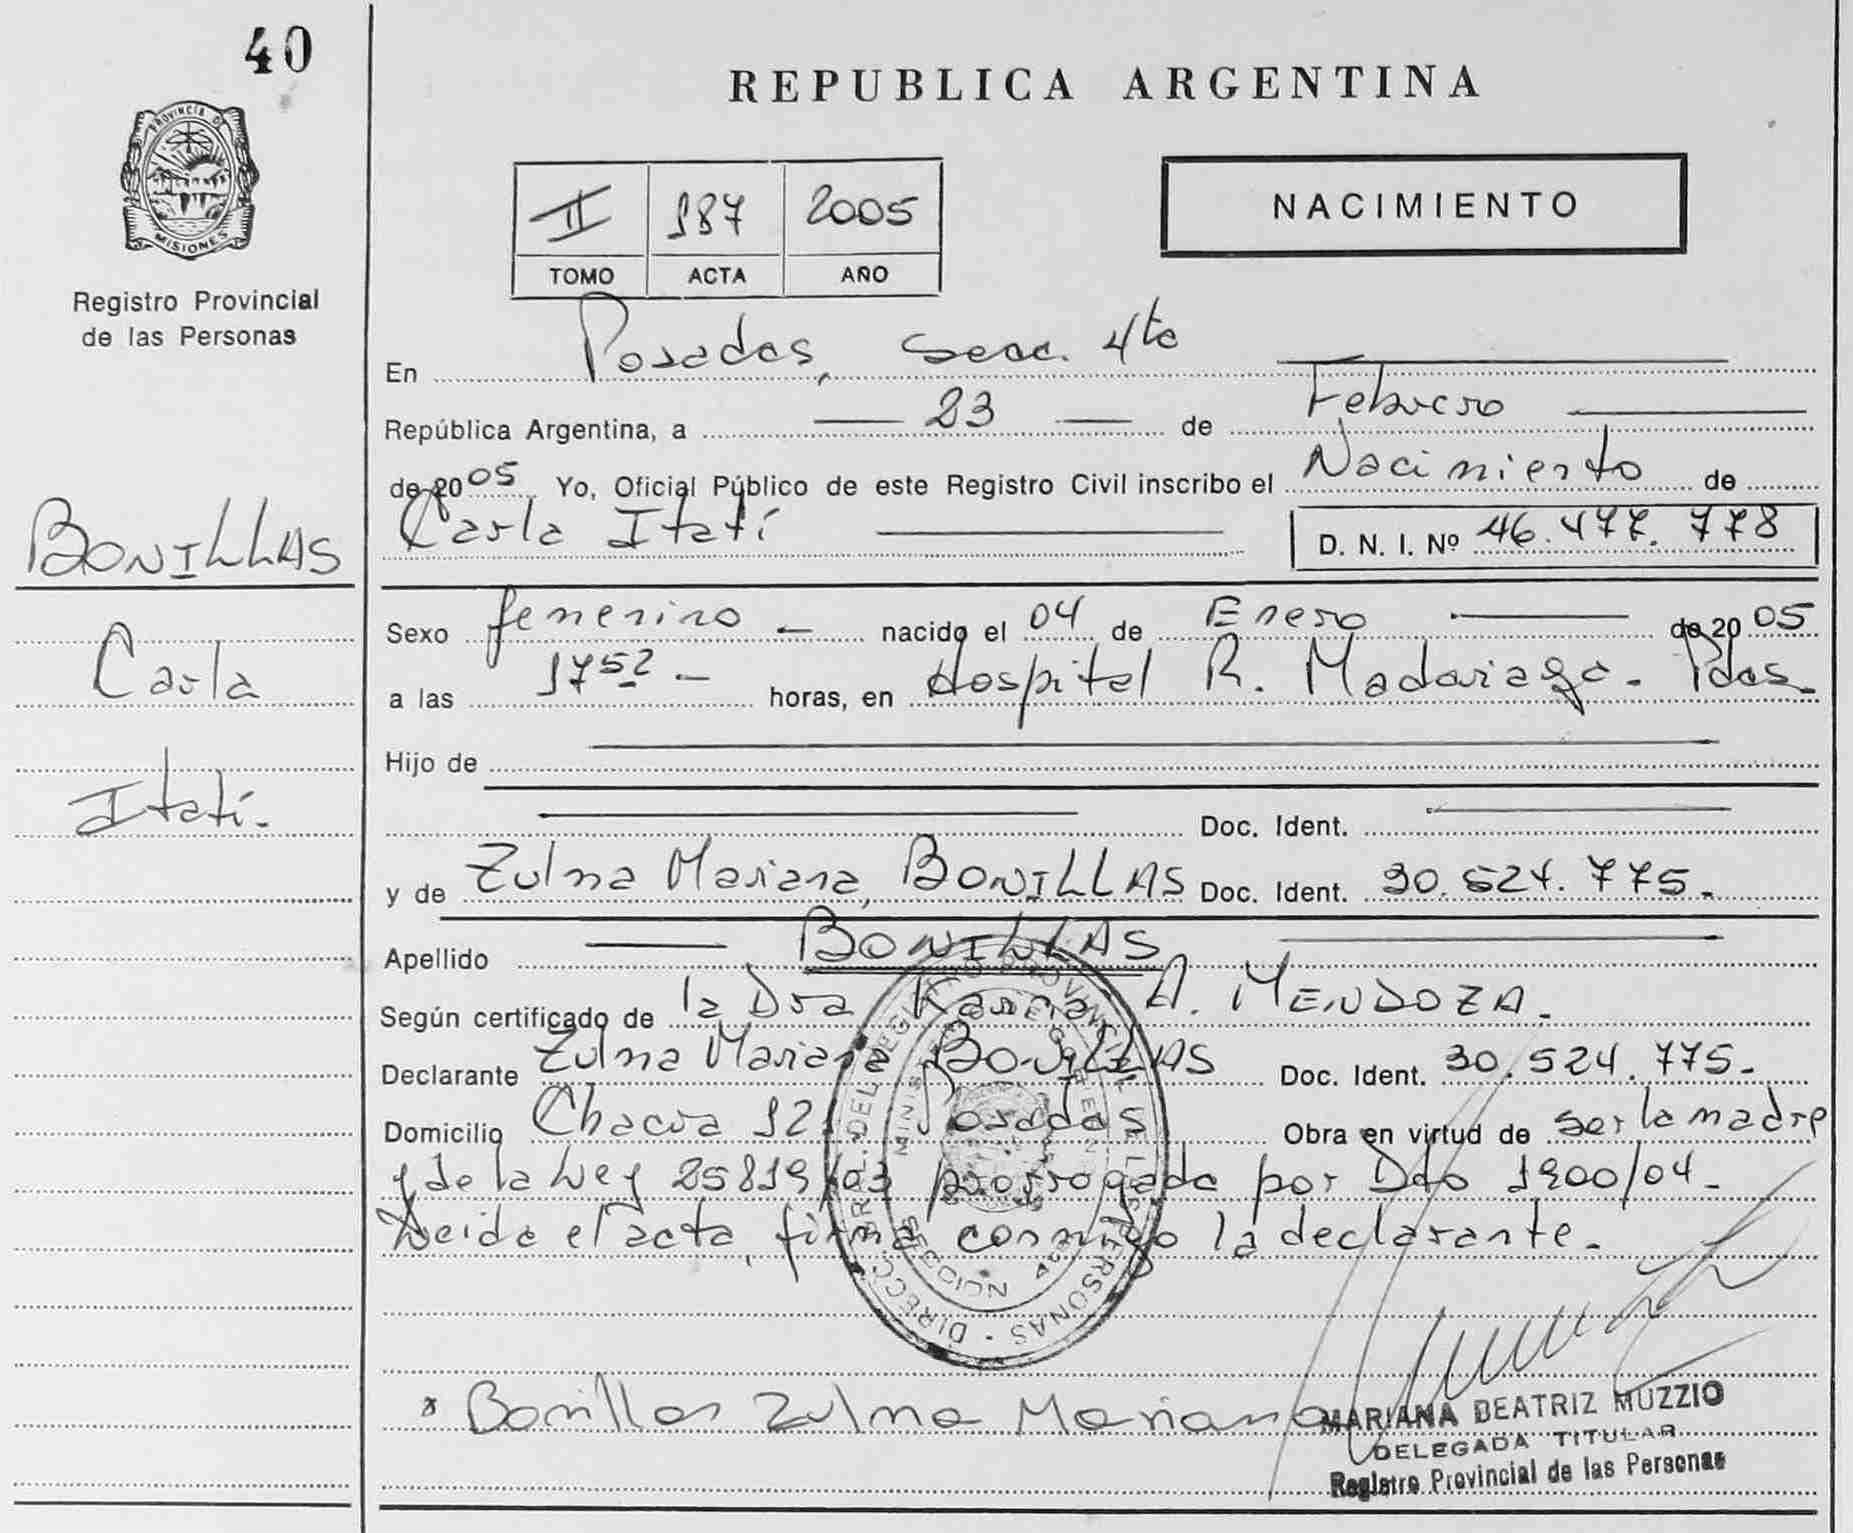 40
PROVINCIA DE
MISIONES
Registro Provincial
de las Personas
BONILLAS
Carla
Itatí.
REPUBLICA ARGENTINA
II 187 2005
TOMO ACTA AÑO
NACIMIENTO
En Posadas, Secc. 4ta
República Argentina, a 23 de Febrero
de 2005 Yo, Oficial Público de este Registro Civil inscribo el Nacimiento de
Carla Itatí D. N. I. Nº 46.477.778
Sexo femenino nacido el 04 de Enero de 2005
a las 17 52 horas, en Hospital R. Madariaga. Pdas.
Hijo de
Doc. Ident.
y de Zulma Mariana, BONILLAS Doc. Ident. 30.524.775.
Apellido BONILLAS
Según certificado de la Dra Karina A. MENDOZA.
Declarante Zulma Mariana BONILLAS Doc. Ident. 30.524.775.
Domicilio Chacra 121 Posadas Obra en virtud de ser la madre
y de la Ley 25819/03 prorrogada por Dto 1900/04.
Leida el acta, firma conmigo la declarante.
Bonillas Zulma Mariana
MARIANA BEATRIZ MUZZIO
DELEGADA TITULAR
Registro Provincial de las Personas